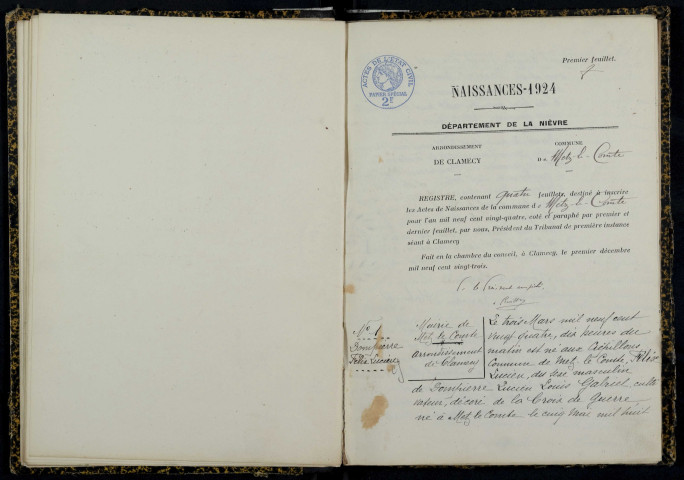 Premier feuillet.
ACTES DE L'ÉTAT CIVIL
PAPIER SPÉCIAL
2F
NAISSANCES-1924
DÉPARTEMENT DE LA NIÈVRE
ARRONDISSEMENT
DE CLAMECY
COMMUNE
De Metz-le-Comte
REGISTRE, contenant quatre feuillets, destiné à inscrire
les Actes de Naissances de la commune de Metz-le-Comte
pour l'an mil neuf cent vingt-quatre, coté et paraphé par premier et
dernier feuillet, par nous, Président du Tribunal de première instance
séant à Clamecy
Fait en la chambre du conseil, à Clamecy, le premier décembre
mil neuf cent vingt-trois.
No 1
Dompierre
Félix Lucien
Mairie de
Metz le Comte
Arrondissement
de Clamecy
Le trois Mars mil neuf cent
vingt quatre, dix heures du
matin est né aux
Commune de Metz le Comte, Félix
Lucien, du sexe masculin
de Dompierre Lucien Louis Gabriel culti
vateur, décoré de la Croix de Guerre
né à Metz le Comte le cinq Mai mil huit